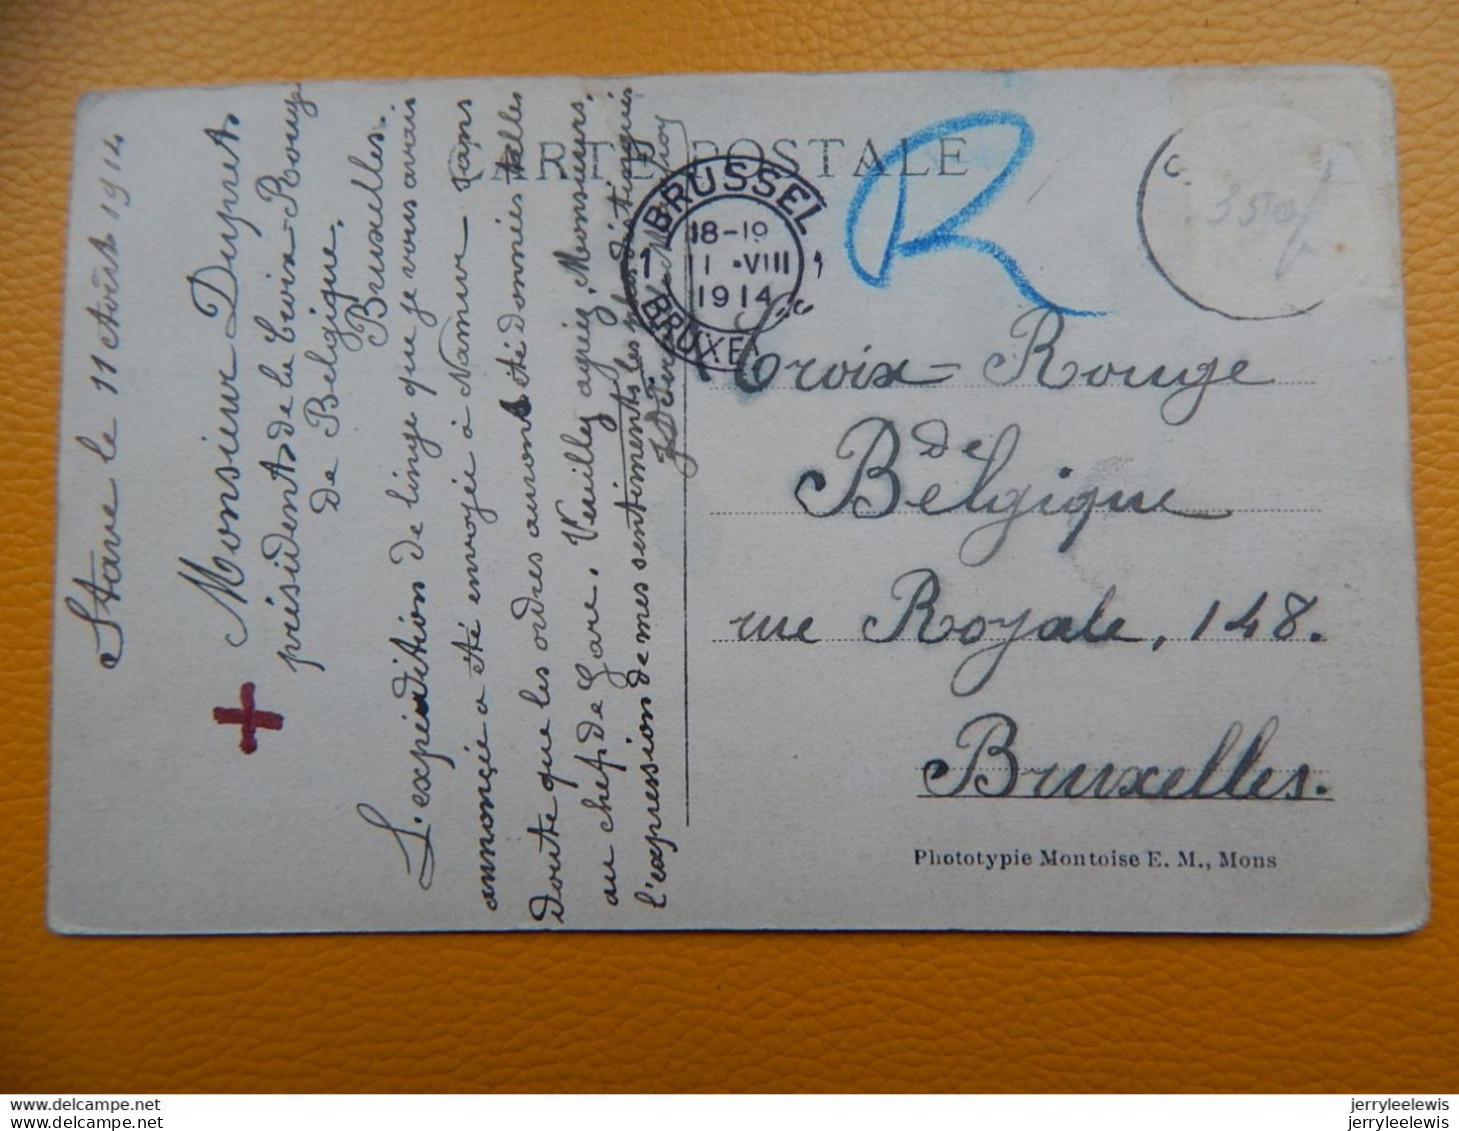 CARTE POSTALE
Stave le 11 Août 1914
Monsieur Duprets
présidents de la Croix-Rouge
de Belgique.
Bruxelles.
L'expédition de linge que je vous avais
annonçée a été envoyée à Namur sans
doute que les ordres auront été donnés telles
au chef de Gare. Veuillez agréez, Monsieurs.
l'expression de mes sentiments les plus distingués
BRUSSEL
18-19
11 VIII
1914
BRUXE
R
Croix-Rouge
de
Belgique
rue Royale, 148.
Bruxelles.
Phototypie Montoise E. M., Mons
jerryleelewis
jerryleelewis
jerryleelewis
jerryleelewis